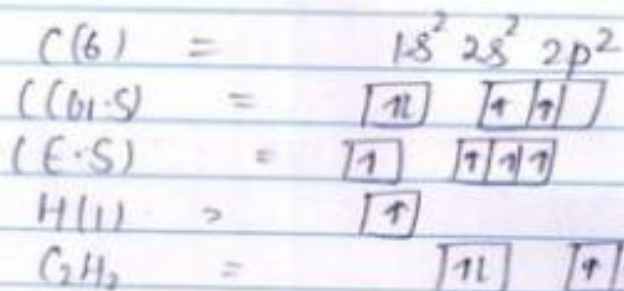 C(6) = 1s² 2s² 2p²
C(G.S) = [↑↓] [↑|↑| ]
(E.S) = [↑] [↑|↑|↑]
H(1) > [↑]
C₂H₂ = [↑↓] [↑